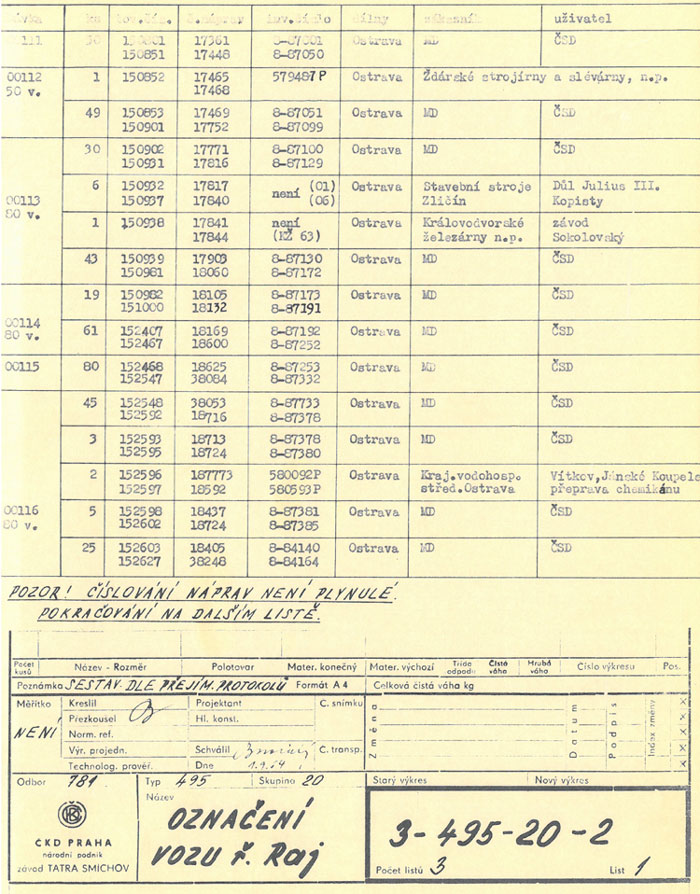 ks tov.čís. č.náprav inv.číslo dílny zákazník uživatel
00111 30 17361 Ostrava MD ČSD
150851 17448 8-87050
00112 1 150852 17465 579487P Ostrava Ždárské strojírny a slévárny, n.p.
50 v. 17468
49 150853 17469 8-87051 Ostrava MD ČSD
150901 17752 8-87099
30 150902 17771 8-87100 Ostrava MD ČSD
150931 17816 8-87129
00113 6 150932 17817 není (01) Ostrava Stavební stroje Důl Julius III.
80 v. 150937 17840 (06) Zličín Kopisty
1 150938 17841 není Ostrava Královodvorské závod
17844 (KŽ 63) železárny n.p. Sokolovský
43 150939 17903 8-87130 Ostrava MD ČSD
150981 18060 8-87172
19 150982 18105 8-87173 Ostrava MD ČSD
151000 18132 8-87191
00114
80 v. 61 152407 18169 8-87192 Ostrava MD ČSD
152467 18600 8-87252
00115 80 152468 18625 8-87253 Ostrava MD ČSD
152547 38084 8-87332
45 152548 38053 8-87733 Ostrava MD ČSD
152592 18716 8-87378
3 152593 18713 8-87378 Ostrava MD ČSD
152595 18724 8-87380
2 152596 187773 580092P Ostrava Kraj.vodohosp. Vítkov,Jánské Koupele
152597 18592 580593P střed.Ostrava přeprava chemikánu
00116 5 152598 18437 8-87381 Ostrava MD ČSD
80 v. 152602 18724 8-87385
25 152603 18405 8-84140 Ostrava MD ČSD
152627 38248 8-84164
POZOR! ČÍSLOVÁNÍ NÁPRAV NENÍ PLYNULÉ.
POKRAČOVÁNÍ NA DALŠÍM LISTĚ.
Počet kusů Název - Rozměr Polotovar Mater. konečný Mater. výchozí Třída odpadu Čistá váha Hrubá váha Číslo výkresu Pos.
Poznámka SESTAV. DLE PŘEJÍM. PROTOKOLŮ Formát A 4 Celková čistá váha kg
Měřítko Kreslil Projektant C. snímku Změna Datum Podpis Index změny x
NENÍ Přezkousel Hl. konst. x
Norm. ref. x
Výr. projedn. Schválil C. transp. x
Technolog. prověř. Dne 1.9.64 x
Odbor 781 Typ 495 Skupina 20 Starý výkres Nový výkres
ČKD PRAHA
národní podnik
závod TATRA SMÍCHOV
Název
OZNAČENÍ
VOZU Ř. Raj
3-495-20-2
Počet listů 3 List 1